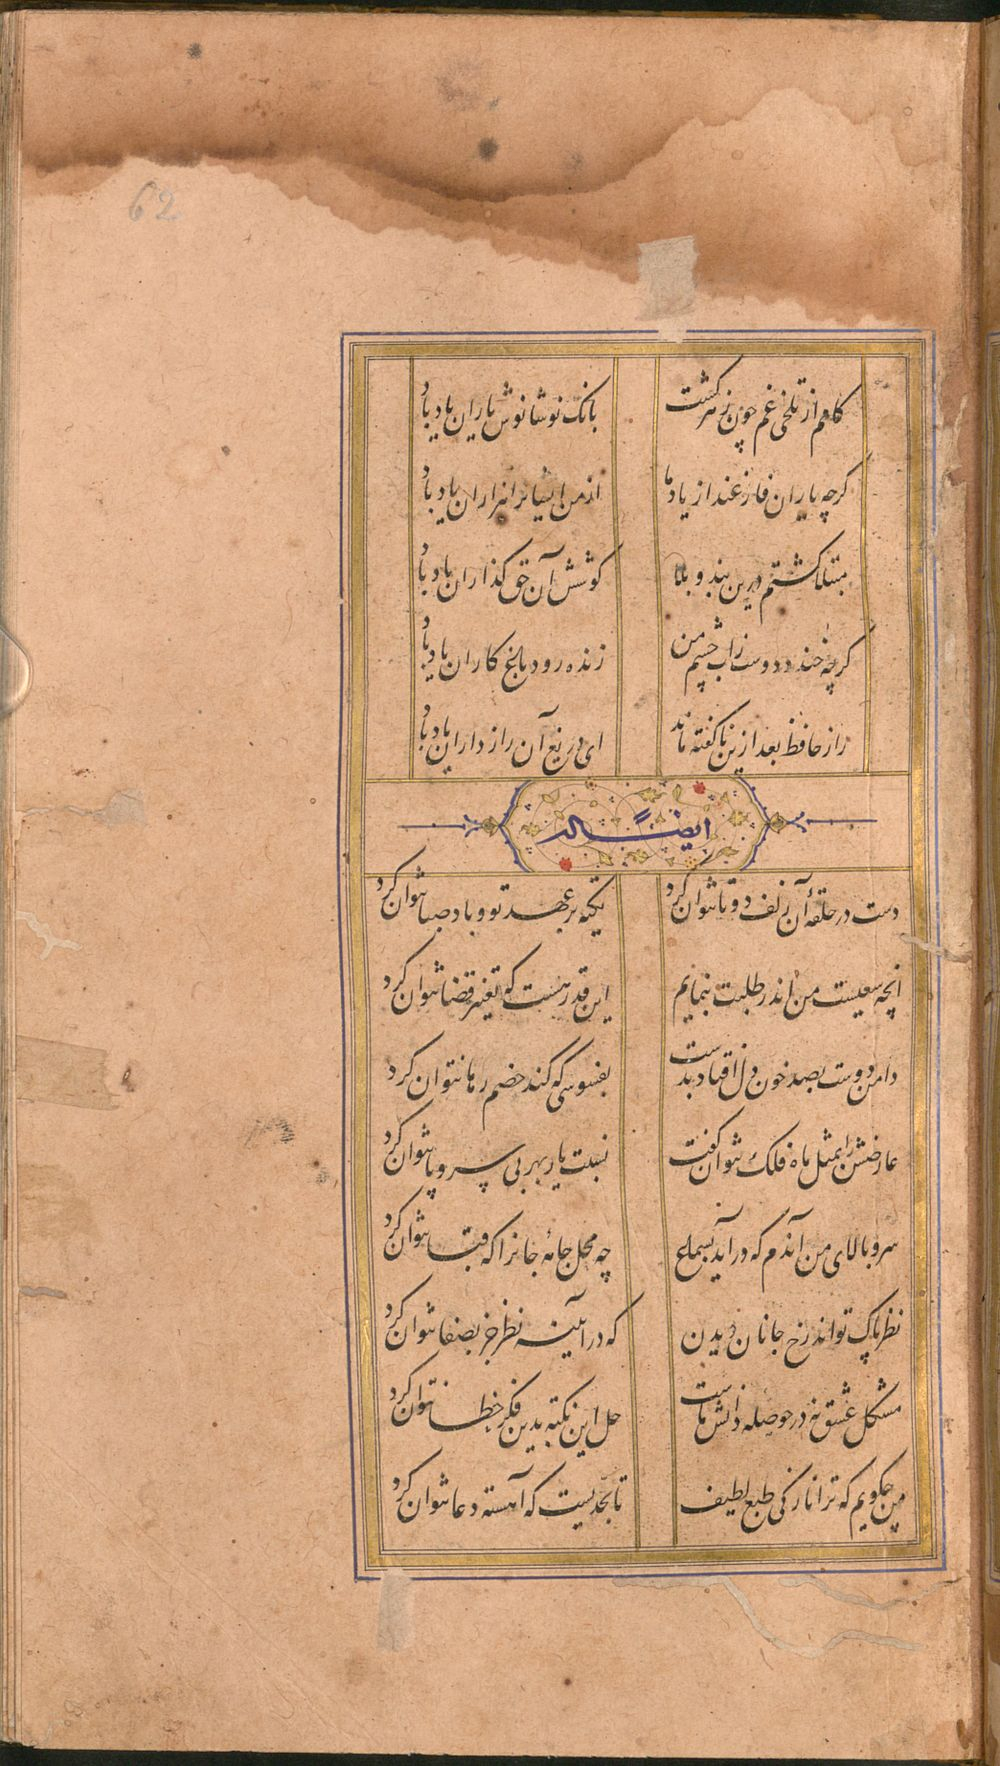 62
کامم از تلخی غم چون زهر گشت بانک نوشانوش یاران یاد باد
کرچه یاران فارغند از یاد ما از من ایشانرا هزاران یاد باد
مبتلا کشتم درین بند و بلا کوشش آن حق کذاران یاد باد
کرچه خندد دوست زاب چشم من زنده رود باغ کاران یاد باد
راز حافظ بعد ازین ناکفته ماند ای دریغ آن راز داران یاد باد
ایضاً له
دست در حلقهٔ آن زلف دوتا نتوان کرد تکیه بر عهد تو و باد صبا نتوان کرد
انچه سعیست من اندر طلبت بنمایم این قدر هست که تغییر قضا نتوان کرد
دامن دوست بصد خون دل افتاد بدست بفسوسی که کند خصم رها نتوان کرد
عارضش را بمثل ماه فلک نتوان کفت نسبت یار بهر بی سر و پا نتوان کرد
سرو بالای من آندم که دراید بسماع چه محل جامهٔ جانرا که قبا نتوان کرد
نظر پاک تواند رخ جانان دیدن که در آیینه نظر جز بصفا نتوان کرد
مشکل عشق نه در حوصله دانش ماست حل این نکته بدین فکر خطا نتوان کرد
من چکویم که ترا نازکی طبع لطیف تا بحدیست که آهسته دعا نتوان کرد